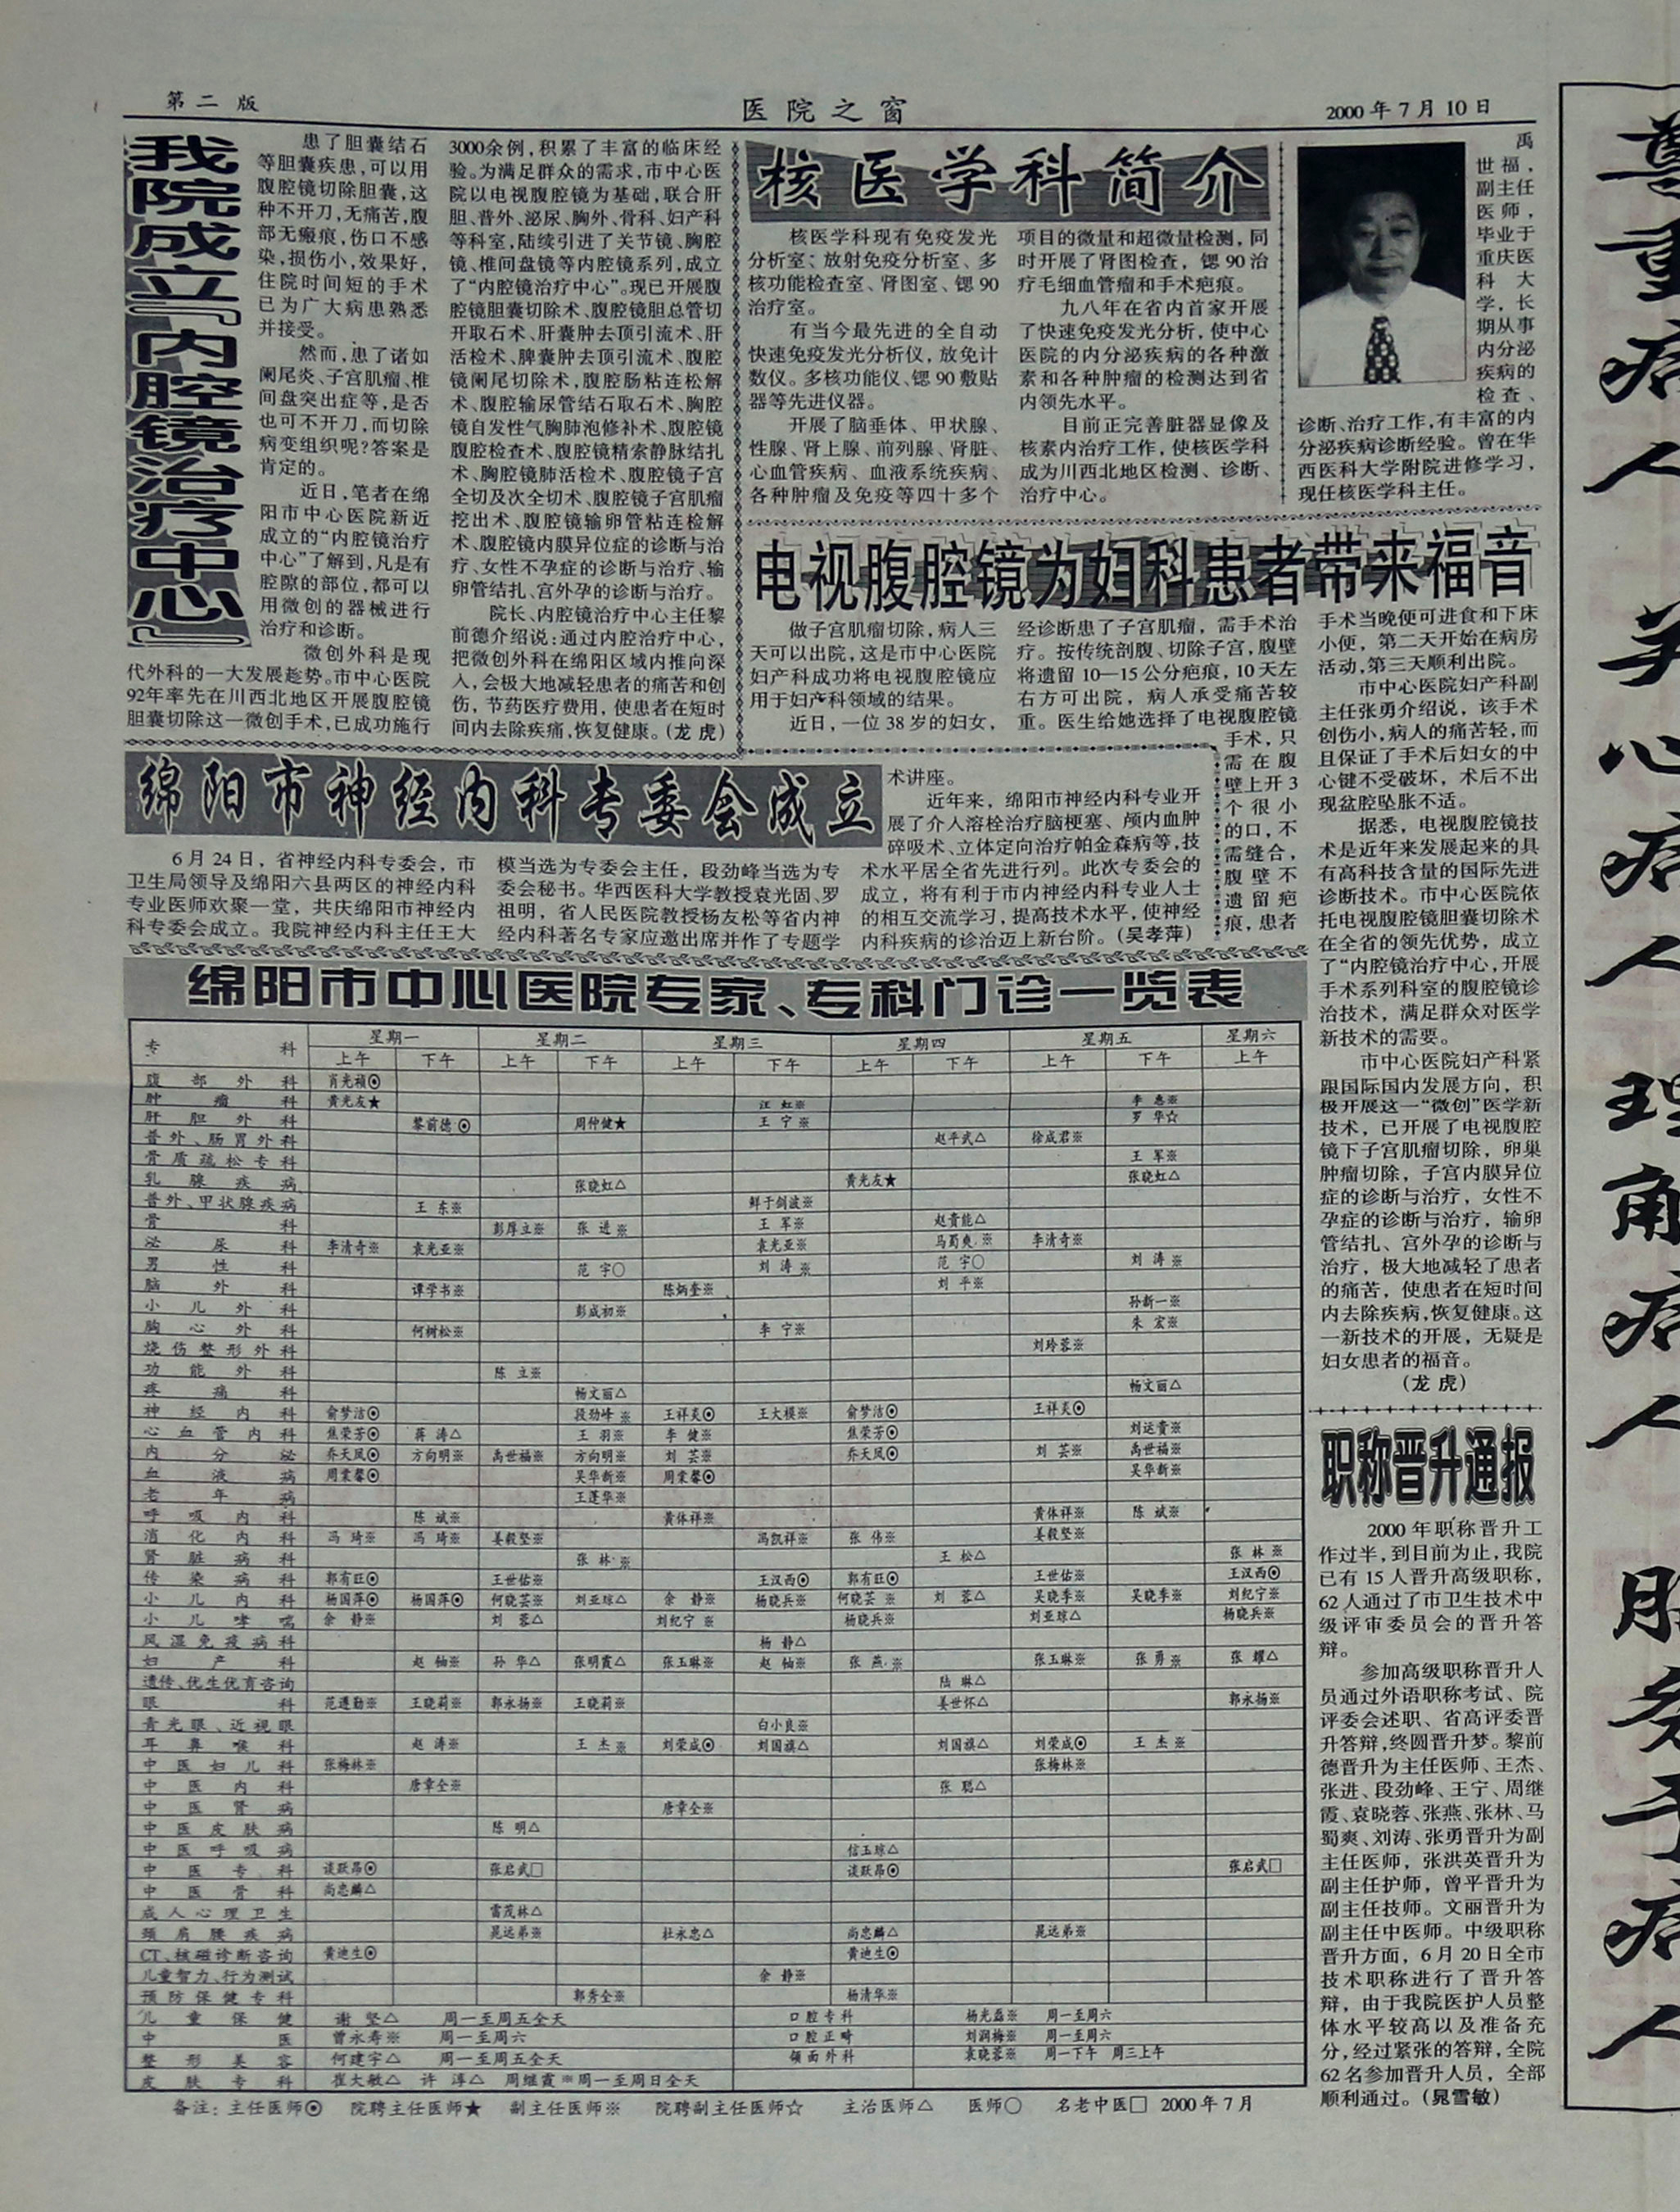 第二版
医院之窗
2000年7月10日
我院成立『内腔镜治疗中心』
患了胆囊结石
等胆囊疾患,可以用
腹腔镜切除胆囊,这
种不开刀,无痛苦,腹
部无瘢痕,伤口不感
染,损伤小,效果好,
住院时间短的手术
已为广大病患熟悉
并接受。
然而,患了诸如
阑尾炎、子宫肌瘤、椎
间盘突出症等,是否
也可不开刀,而切除
病变组织呢?答案是
肯定的。
近日,笔者在绵
阳市中心医院新近
成立的“内腔镜治疗
中心”了解到,凡是有
腔隙的部位,都可以
用微创的器械进行
治疗和诊断。
微创外科是现
代外科的一大发展趁势。市中心医院
92年率先在川西北地区开展腹腔镜
胆囊切除这一微创手术,已成功施行
3000余例,积累了丰富的临床经
验。为满足群众的需求,市中心医
院以电视腹腔镜为基础,联合肝
胆、普外、泌尿、胸外、骨科、妇产科
等科室,陆续引进了关节镜、胸腔
镜、椎间盘镜等内腔镜系列,成立
了“内腔镜治疗中心”。现已开展腹
腔镜胆囊切除术、腹腔镜胆总管切
开取石术、肝囊肿去顶引流术、肝
活检术、脾囊肿去顶引流术、腹腔
镜阑尾切除术,腹腔肠粘连松解
术、腹腔输尿管结石取石术、胸腔
镜自发性气胸肺泡修补术、腹腔镜
腹腔检查术、腹腔镜精索静脉结扎
术、胸腔镜肺活检术、腹腔镜子宫
全切及次全切术、腹腔镜子宫肌瘤
挖出术、腹腔镜输卵管粘连检解
术、腹腔镜内膜异位症的诊断与治
疗、女性不孕症的诊断与治疗、输
卵管结扎、宫外孕的诊断与治疗。
院长、内腔镜治疗中心主任黎
前德介绍说:通过内腔治疗中心,
把微创外科在绵阳区域内推向深
入,会极大地减轻患者的痛苦和创
伤,节药医疗费用,使患者在短时
间内去除疾痛,恢复健康。(龙虎)
核医学科简介
核医学科现有免疫发光
分析室;放射免疫分析室、多
核功能检查室、肾图室、锶90
治疗室。
有当今最先进的全自动
快速免疫发光分析仪,放免计
数仪。多核功能仪、锶90敷贴
器等先进仪器。
开展了脑垂体、甲状腺、
性腺、肾上腺、前列腺、肾脏、
心血管疾病、血液系统疾病、
各种肿瘤及免疫等四十多个
项目的微量和超微量检测,同
时开展了肾图检查,锶90治
疗毛细血管瘤和手术疤痕。
九八年在省内首家开展
了快速免疫发光分析,使中心
医院的内分泌疾病的各种激
素和各种肿瘤的检测达到省
内领先水平。
目前正完善脏器显像及
核素内治疗工作,使核医学科
成为川西北地区检测、诊断、
治疗中心。
禹
世福,
副主任
医师,
毕业于
重庆医
科大
学,长
期从事
内分泌
疾病的
检查、
诊断、治疗工作,有丰富的内
分泌疾病诊断经验。曾在华
西医科大学附院进修学习,
现任核医学科主任。
电视腹腔镜为妇科患者带来福音
做子宫肌瘤切除,病人三
天可以出院,这是市中心医院
妇产科成功将电视腹腔镜应
用于妇产科领域的结果。
近日,一位38岁的妇女,
经诊断患了子宫肌瘤,需手术治
疗。按传统剖腹、切除子宫,腹壁
将遗留10—15公分疤痕,10天左
右方可出院,病人承受痛苦较
重。医生给她选择了电视腹腔镜
手术,只
需在腹
壁上开3
个很小
的口,不
需缝合,
腹壁不
遗留疤
痕,患者
手术当晚便可进食和下床
小便,第二天开始在病房
活动,第三天顺利出院。
市中心医院妇产科副
主任张勇介绍说,该手术
创伤小,病人的痛苦轻,而
且保证了手术后妇女的中
心键不受破坏,术后不出
现盆腔坠胀不适。
据悉,电视腹腔镜技
术是近年来发展起来的具
有高科技含量的国际先进
诊断技术。市中心医院依
托电视腹腔镜胆囊切除术
在全省的领先优势,成立
了“内腔镜治疗中心,开展
手术系列科室的腹腔镜诊
治技术,满足群众对医学
新技术的需要。
市中心医院妇产科紧
跟国际国内发展方向,积
极开展这一“微创”医学新
技术,已开展了电视腹腔
镜下子宫肌瘤切除,卵巢
肿瘤切除,子宫内膜异位
症的诊断与治疗,女性不
孕症的诊断与治疗,输卵
管结扎、宫外孕的诊断与
治疗,极大地减轻了患者
的痛苦,使患者在短时间
内去除疾病,恢复健康。这
一新技术的开展,无疑是
妇女患者的福音。
(龙虎)
绵阳市神经内科专委会成立
6月24日,省神经内科专委会,市
卫生局领导及绵阳六县两区的神经内科
专业医师欢聚一堂,共庆绵阳市神经内
科专委会成立。我院神经内科主任王大
模当选为专委会主任,段劲峰当选为专
委会秘书。华西医科大学教授袁光固、罗
祖明,省人民医院教授杨友松等省内神
经内科著名专家应邀出席并作了专题学
术讲座。
近年来,绵阳市神经内科专业开
展了介入溶栓治疗脑梗塞、颅内血肿
碎吸术、立体定向治疗帕金森病等,技
术水平居全省先进行列。此次专委会的
成立,将有利于市内神经内科专业人士
的相互交流学习,提高技术水平,使神经
内科疾病的诊治迈上新台阶。(吴孝萍)
绵阳市中心医院专家、专科门诊一览表
专科 星期一 星期二 星期三 星期四 星期五 星期六
上午 下午 上午 下午 上午 下午 上午 下午 上午 下午 上午
腹部外科 肖光祯⊙
肿瘤科 黄光友★ 江虹※ 李惠※
肝胆外科 黎前德⊙ 周仲健★ 王宁※ 罗华☆
普外、肠胃外科 赵平武△ 徐成君※
骨质疏松专科 王军※
乳腺疾病 张晓虹△ 黄光友★ 张晓虹△
普外、甲状腺疾病 王东※ 鲜于剑波※
骨科 彭厚立※ 张进※ 王军※ 赵贵能△
泌尿科 李清奇※ 袁光亚※ 袁光亚※ 马蜀爽※ 李清奇※
男性科 范宇○ 刘涛※ 范宇○ 刘涛※
脑外科 谭学书※ 陈炳奎※ 刘平※
小儿外科 彭成初※ 孙新一※
胸心外科 何树松※ 李宁※ 朱宏※
烧伤整形外科 刘玲蓉※
功能外科 陈立※
疼痛科 杨文丽△ 杨文丽△
神经内科 俞梦洁⊙ 段劲峰※ 王祥炎⊙ 王大模※ 俞梦洁⊙ 王祥炎⊙
心血管内科 焦荣芳⊙ 蒋涛△ 王羽※ 李健※ 焦荣芳⊙ 刘运贵※
内分泌 乔天凤⊙ 方向明※ 禹世福※ 方向明※ 刘芸※ 乔天凤⊙ 刘芸※ 禹世福※
血液病 周棠馨⊙ 吴华新※ 周棠馨⊙ 吴华新※
老年病 王莲华※
呼吸内科 陈斌※ 黄体祥※ 黄体祥※ 陈斌※
消化内科 冯琦※ 冯琦※ 姜毅坚※ 冯凯祥※ 张伟※ 姜毅坚※
肾脏病科 张林※ 王松△ 张林※
传染病科 郭有旺⊙ 王世佑※ 王汉西⊙ 郭有旺⊙ 王世佑※ 王汉西⊙
小儿内科 杨国萍⊙ 杨国萍⊙ 何晓芸※ 刘亚琼△ 余静※ 杨晓兵※ 何晓芸※ 刘蓉△ 吴晓李※ 吴晓李※ 刘纪宁※
小儿哮喘 余静※ 刘蓉△ 刘纪宁※ 杨晓兵※ 刘亚琼△ 杨晓兵※
风湿免疫病科 杨静△
妇产科 赵铀※ 孙华△ 张明霞△ 张玉琳※ 赵铀※ 张燕※ 张玉琳※ 张勇※ 张耀△
遗传、优生优育咨询 陆琳△
眼科 范遵勤※ 王晓莉※ 郭永扬※ 王晓莉※ 姜世怀△ 郭永扬※
青光眼、近视眼 白小良※
耳鼻喉科 赵涛※ 王杰※ 刘荣成⊙ 刘国旗△ 刘国旗△ 刘荣成⊙ 王杰※
中医妇儿科 张梅林※ 张梅林※
中医内科 唐章全※ 张聪△
中医肾病 唐章全※
中医皮肤病 陈明△
中医呼吸病 信玉琼△
中医专科 谈跃昂⊙ 张启武□ 谈跃昂⊙ 张启武□
中医骨科 尚忠麟△
成人心理卫生 雷茂林△
颈肩腰疾病 晁远弟※ 杜永忠△ 尚忠麟△ 晁远弟※
CT、核磁诊断咨询 黄迪生⊙ 黄迪生⊙
儿童智力、行为测试 余静※
预防保健专科 郭秀全※ 杨清华※
儿童保健 谢坚△ 周一至周五全天 口腔专科 杨光磊※ 周一至周六
中医 曾永寿※ 周一至周六 口腔正畸 刘润梅※ 周一至周六
整形美容 何建宇△ 周一至周五全天 颌面外科 袁晓蓉※ 周一下午 周三上午
皮肤专科 崔大敏△ 许淳△ 周继霞※周一至周日全天
备注:主任医师⊙ 院聘主任医师★ 副主任医师※ 院聘副主任医师☆ 主治医师△ 医师○ 名老中医□ 2000年7月
职称晋升通报
2000年职称晋升工
作过半,到目前为止,我院
已有15人晋升高级职称,
62人通过了市卫生技术中
级评审委员会的晋升答
辩。
参加高级职称晋升人
员通过外语职称考试、院
评委会述职、省高评委晋
升答辩,终圆晋升梦。黎前
德晋升为主任医师、王杰、
张进、段劲峰、王宁、周继
霞、袁晓蓉、张燕、张林、马
蜀爽、刘涛、张勇晋升为副
主任医师,张洪英晋升为
副主任护师,曾平晋升为
副主任技师。文丽晋升为
副主任中医师。中级职称
晋升方面,6月20日全市
技术职称进行了晋升答
辩,由于我院医护人员整
体水平较高以及准备充
分,经过紧张的答辩,全院
62名参加晋升人员,全部
顺利通过。(晁雪敏)
尊重病人 关心病人 理解病人 服务于病人